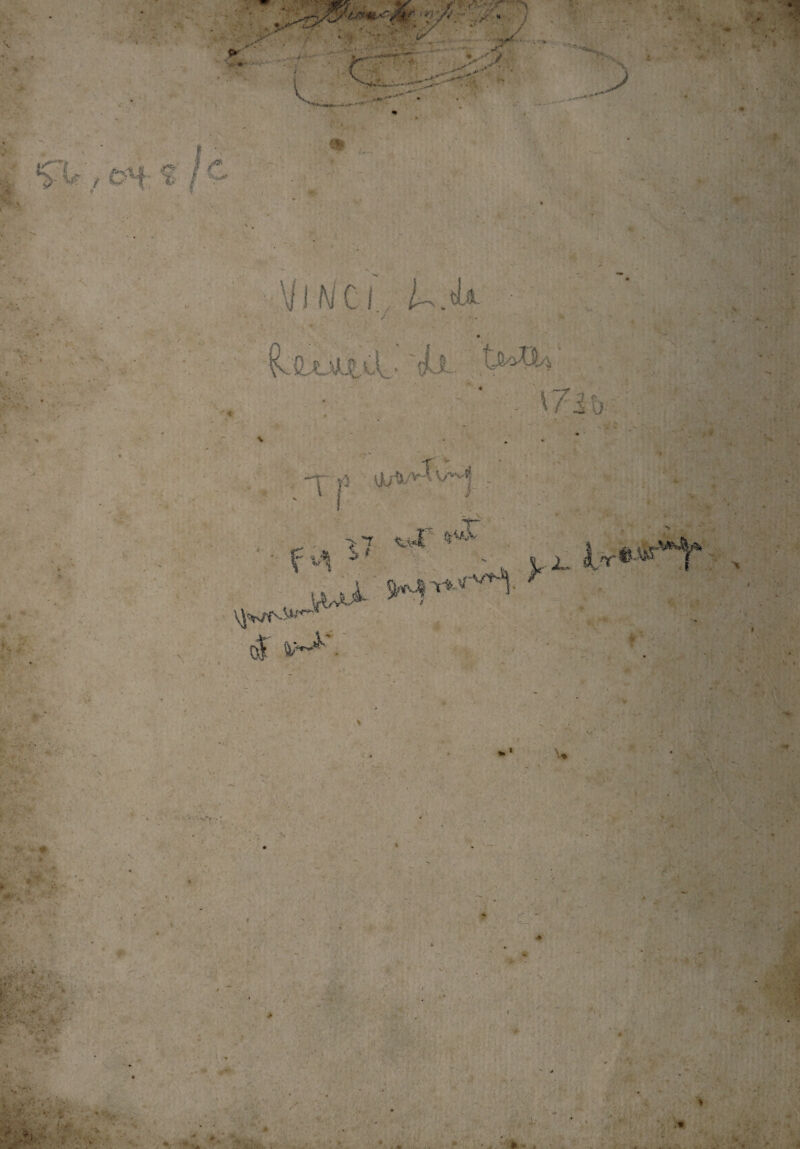 56,048/C
VINCI, L. da
Recueil de testes
1730
Tp wanting
Fig 37 cut out
Unnumbered Engraving & 2 drawings
at end.